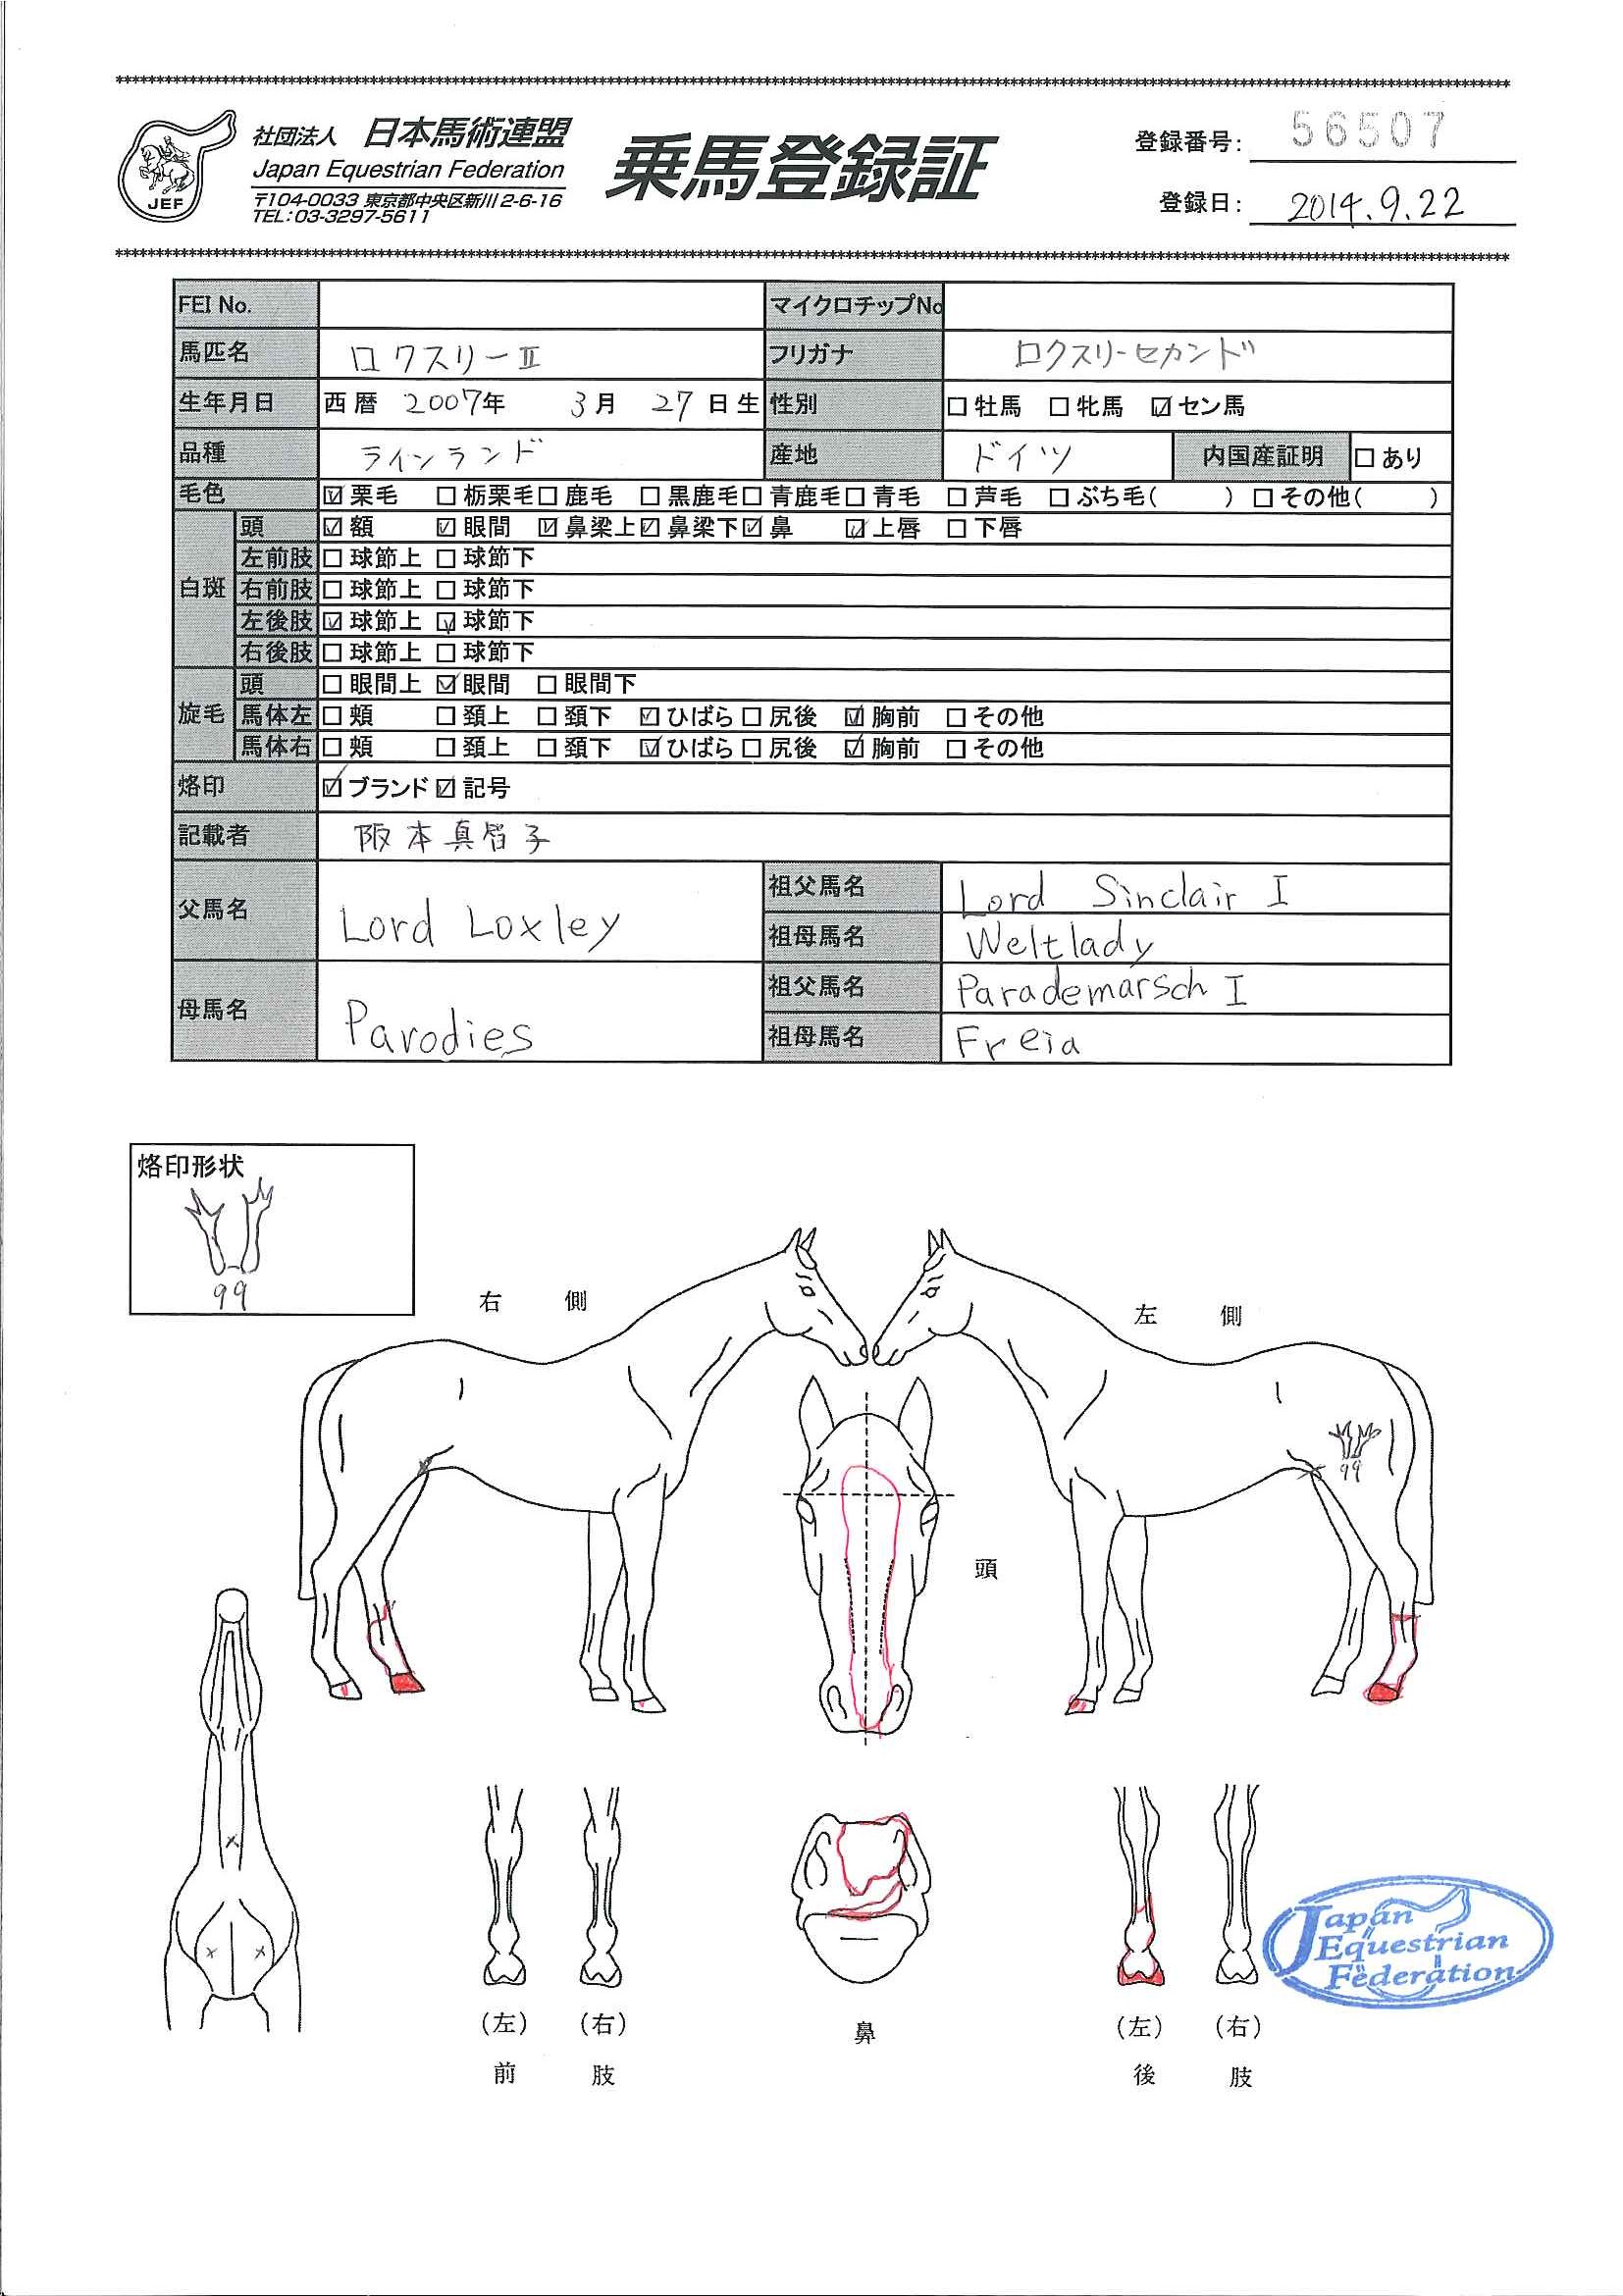 社団法人 日本馬術連盟
Japan Equestrian Federation
〒104-0033 東京都中央区新川2-6-16
TEL:03-3297-5611
JEF
乗馬登録証
登録番号: 56507
登録日: 2014.9.22
FEI No. マイクロチップNo
馬匹名 ロクスリーII フリガナ ロクスリーセカンド
生年月日 西暦 2007年 3月 27日生 性別 □牡馬 □牝馬 ☑セン馬
品種 ラインランド 産地 ドイツ 内国産証明 □あり
毛色 ☑栗毛 □栃栗毛 □鹿毛 □黒鹿毛 □青鹿毛 □青毛 □芦毛 □ぶち毛( ) □その他( )
白斑 頭 ☑額 ☑眼間 ☑鼻梁上 ☑鼻梁下 ☑鼻 ☑上唇 □下唇
左前肢 □球節上 □球節下
右前肢 □球節上 □球節下
左後肢 ☑球節上 ☑球節下
右後肢 □球節上 □球節下
旋毛 頭 □眼間上 ☑眼間 □眼間下
馬体左 □頬 □頚上 □頚下 ☑ひばら □尻後 ☑胸前 □その他
馬体右 □頬 □頚上 □頚下 ☑ひばら □尻後 ☑胸前 □その他
烙印 ☑ブランド ☑記号
記載者 阪本真智子
父馬名 Lord Loxley 祖父馬名 Lord Sinclair I
祖母馬名 Weltlady
母馬名 Parodies 祖父馬名 Parademarsch I
祖母馬名 Freia
烙印形状
99
右 側
左 側
99
頭
(左) (右)
前 肢
鼻
(左) (右)
後 肢
Japan
Equestrian
Federation